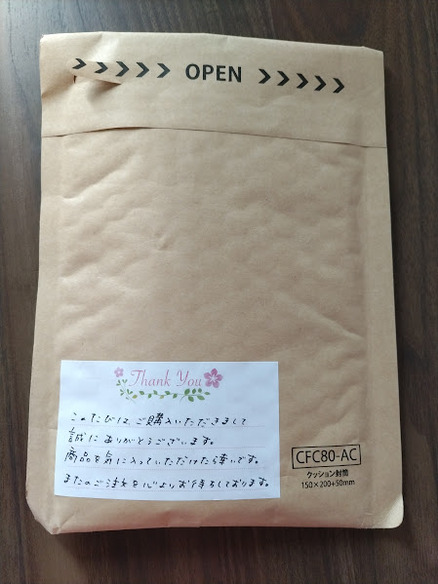 >>>>> OPEN >>>>>
Thank You
このたびは、ご購入いただきまして
誠にありがとうございます。
商品を気に入っていただけたら幸いです。
またのご注文を心よりお待ちしております。
CFC80-AC
クッション封筒
150×200+50mm